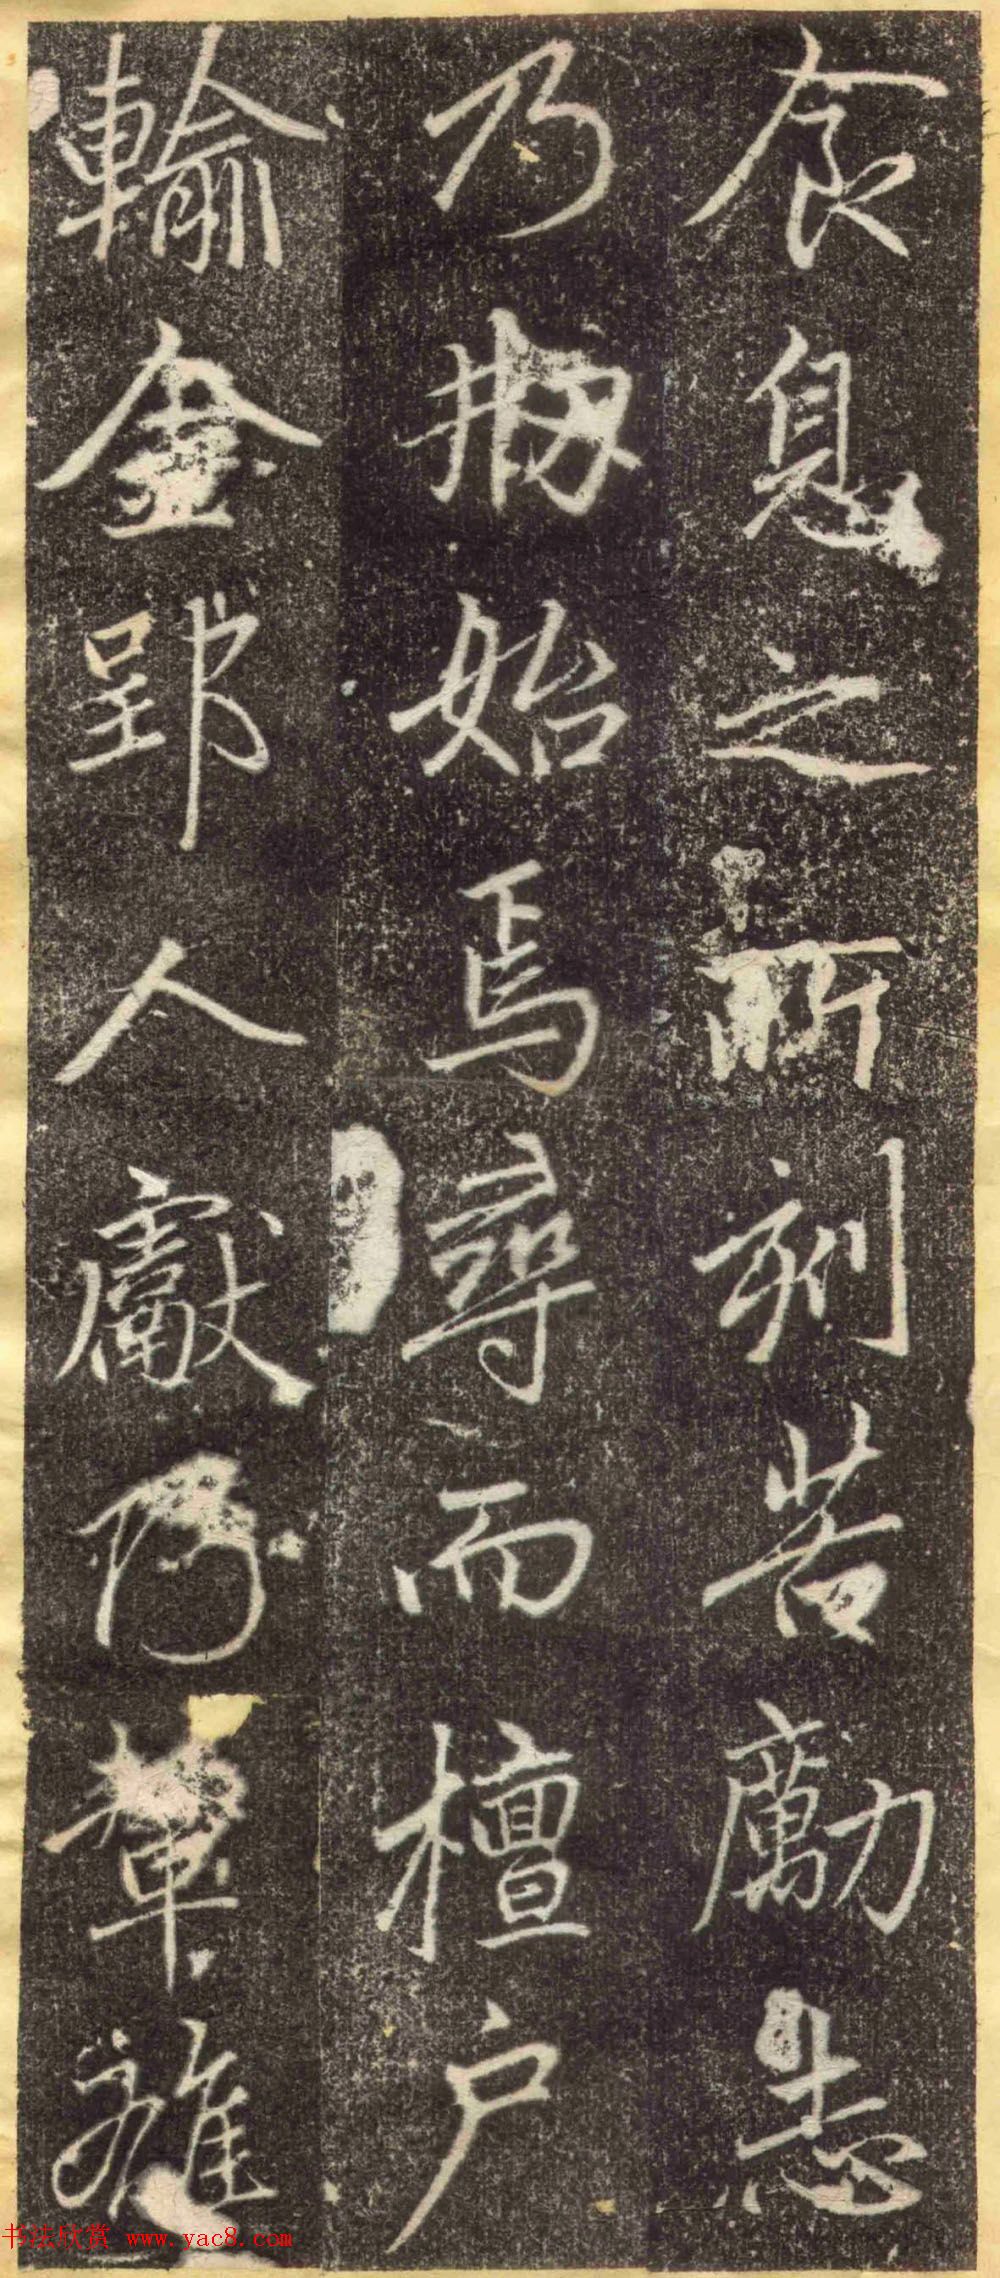 食息之所刻苦勵志
乃刱始焉尋而檀户
輸金郢人獻
书法欣赏 www.yac8.com